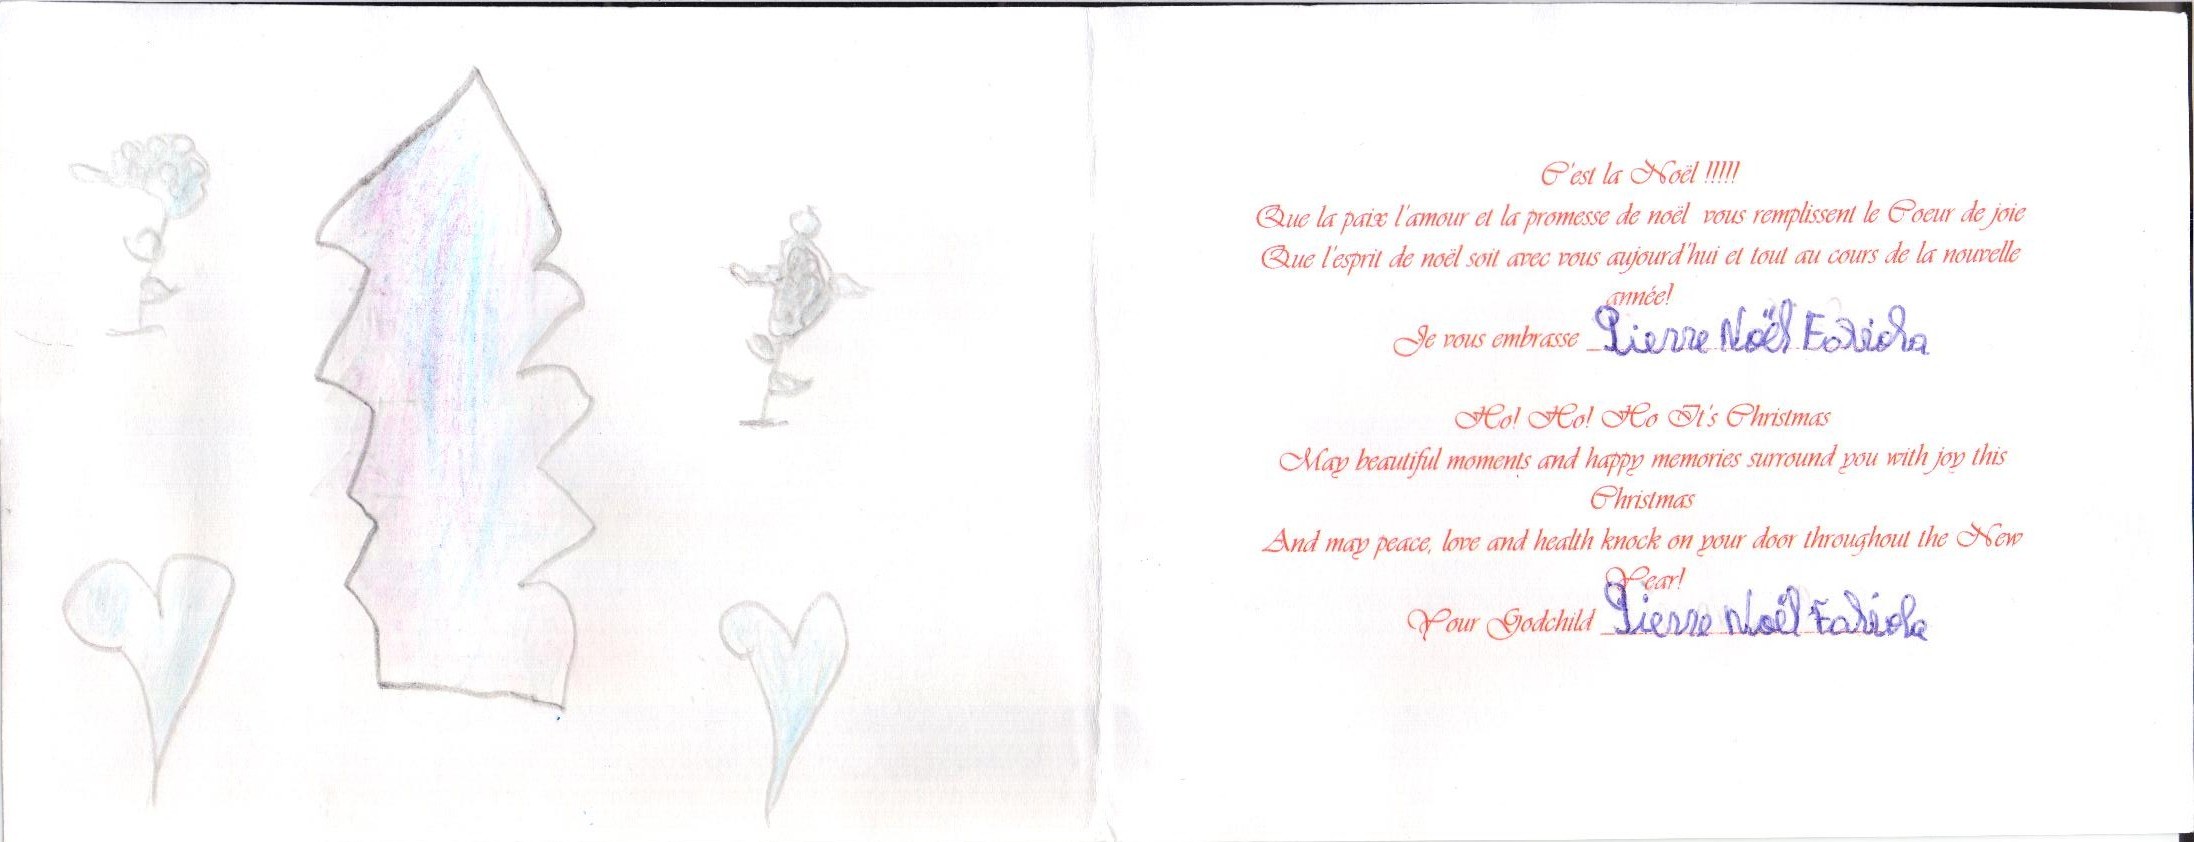 C'est la Noël !!!!!
Que la paix l'amour et la promesse de noël vous remplissent le Coeur de joie
Que l'esprit de noël soit avec vous aujourd'hui et tout au cours de la nouvelle
année!
Je vous embrasse Pierre Noël
Ho! Ho! Ho It's Christmas
May beautiful moments and happy memories surround you with joy this
Christmas
And may peace, love and health knock on your door throughout the New
Year!
Your Godchild Pierre Noël